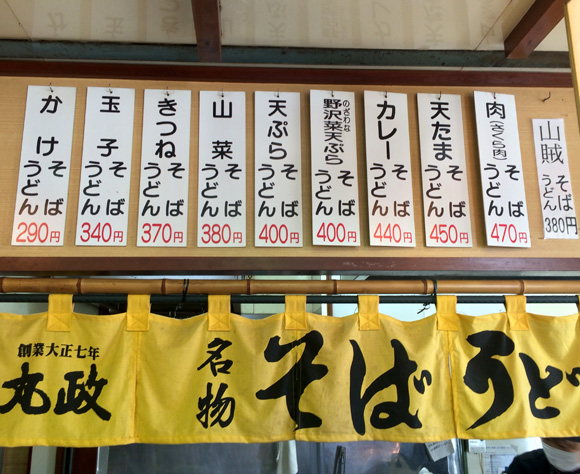 かけそばうどん
290円
玉子そばうどん
340円
きつねそばうどん
370円
山菜そばうどん
380円
天ぷらそばうどん
400円
野沢菜天ぷらそばうどん
のざわな
400円
カレーそばうどん
440円
天たまそばうどん
450円
肉(さくら肉)そばうどん
470円
山賊そばうどん
380円
創業大正七年
丸政
名物
そばうど